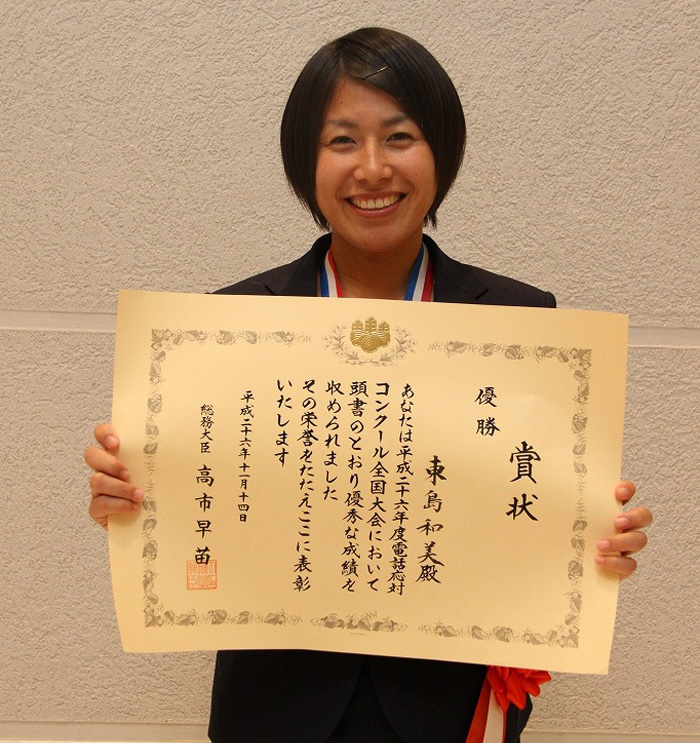 賞状
優勝
東島和美殿
あなたは平成二十六年度電話応対
コンクール全国大会において
頭書のとおり優秀な成績を
収められました
その栄誉をたたえここに表彰
いたします
平成二十六年十一月十四日
総務大臣 高市早苗